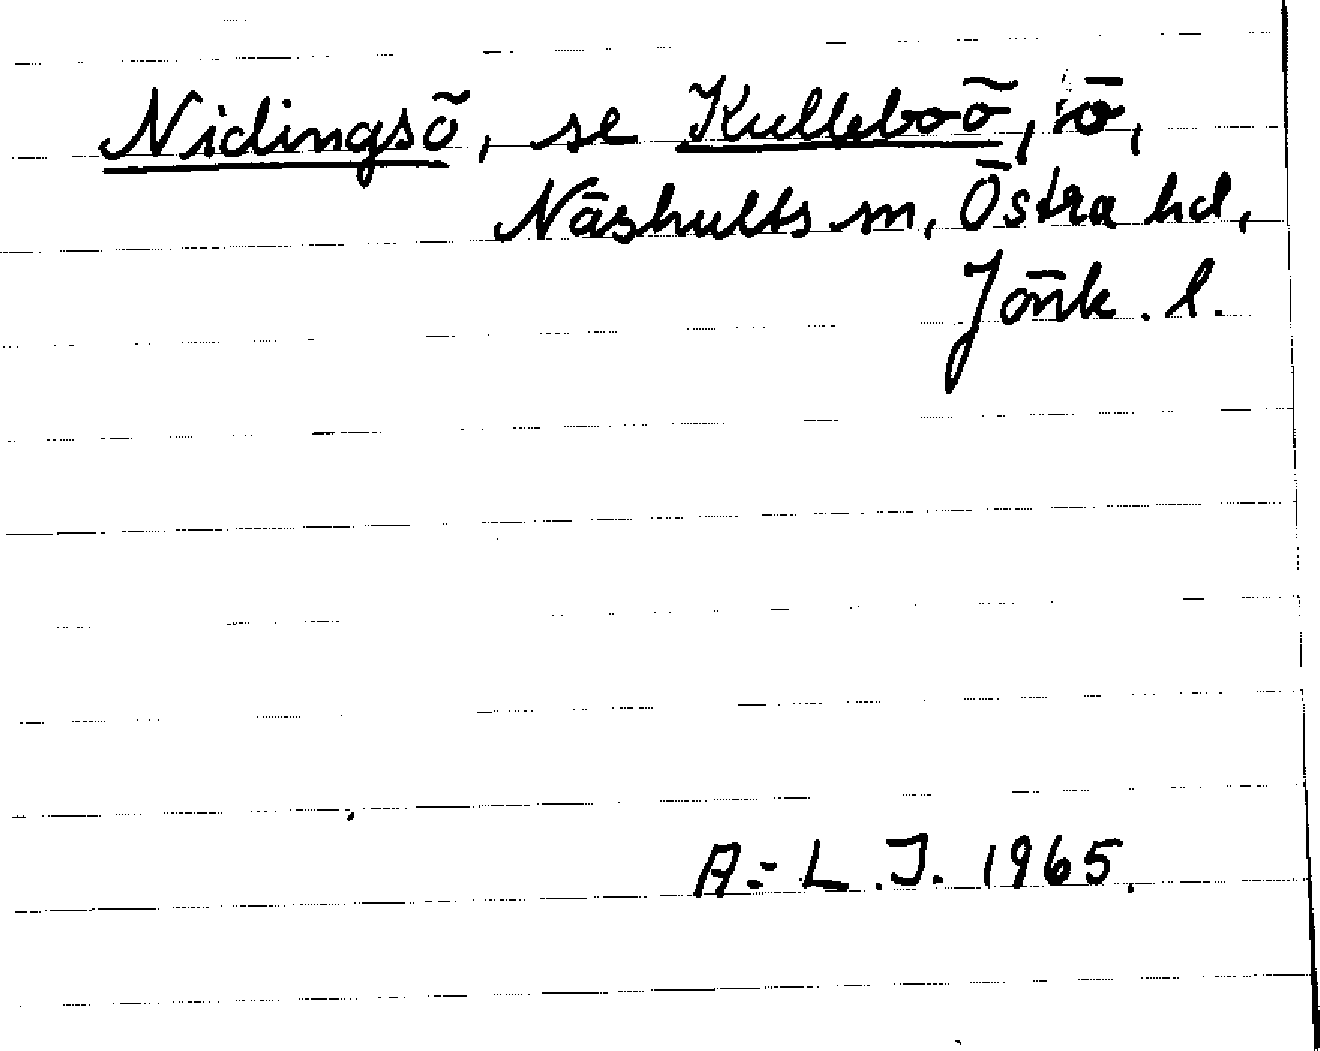 Nidingsö, se Kulleboö, ö,
Näshults sn, Östra hd,
Jönk. l.
A.-L.J. 1965.